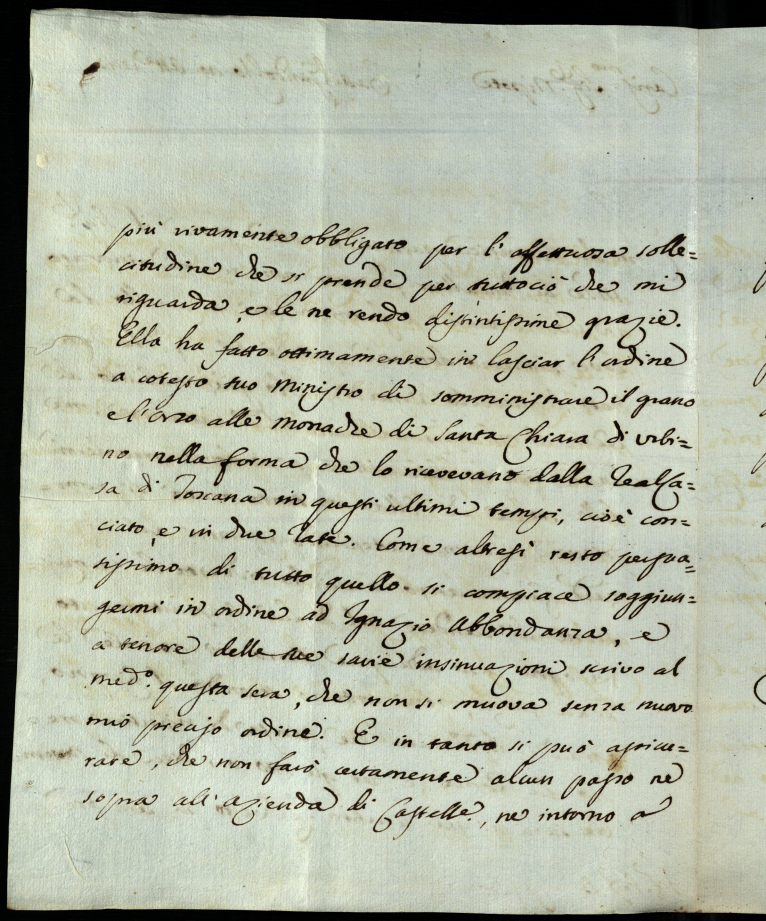 più vivamente obbligato per l'affettuosa solle=
citudine che si prende per tuttociò che mi
riguarda, e le ne rendo distintissime grazie.
Ella ha fatto ottimamente in lasciar l'ordine
a cotesto suo Ministro di somministrare il grano
e l'orzo alle monache di Santa Chiara di Urbi=
no nella forma che lo ricevevano dalla Real Ca=
sa di Toscana in questi ultimi tempi, cioè con=
ciato, e in due rate. Come altresì resto persua=
sissimo di tutto quello si compiace soggiun=
germi in ordine ad Ignazio Abbondanza, e
a tenore delle sue savie insinuazioni scrivo al
med.º questa sera, che non si muova senza nuovo
mio preciso ordine. E in tanto si può assicu=
rare, che non farò certamente alcun passo nè
sopra all'azienda di Castelle, nè intorno a